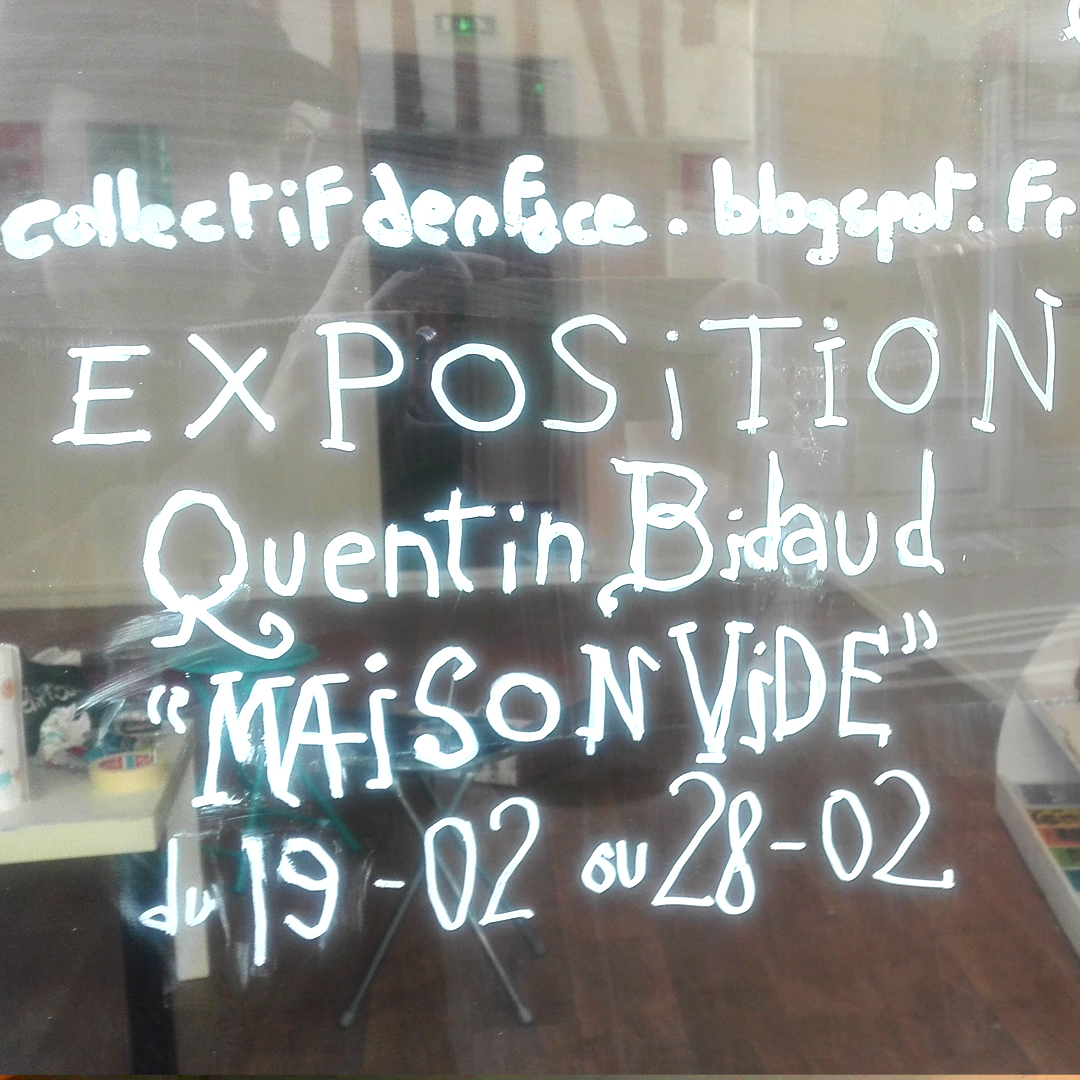 collectif denface.blogspot.fr
EXPOSiTiON
Quentin Bidaud
“MAiSON ViDE”
du 19-02 au 28-02